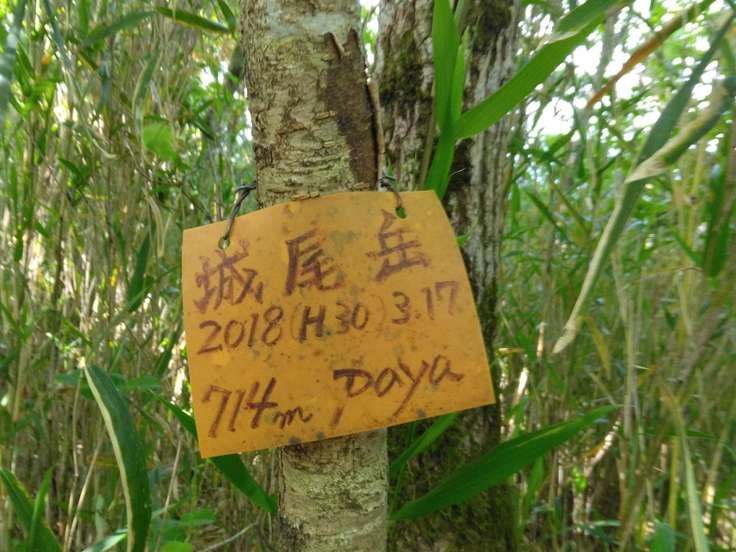 城尾岳
2018(H.30)3.17.
714m paya